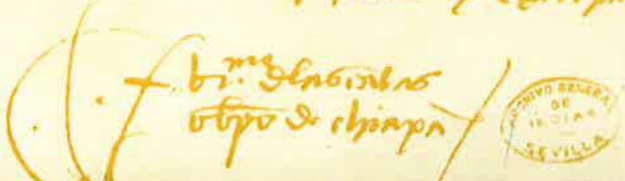 f bi.me delascasas
obpo de chiapa
ARCHIVO GENERAL
DE
INDIAS
SEVILLA